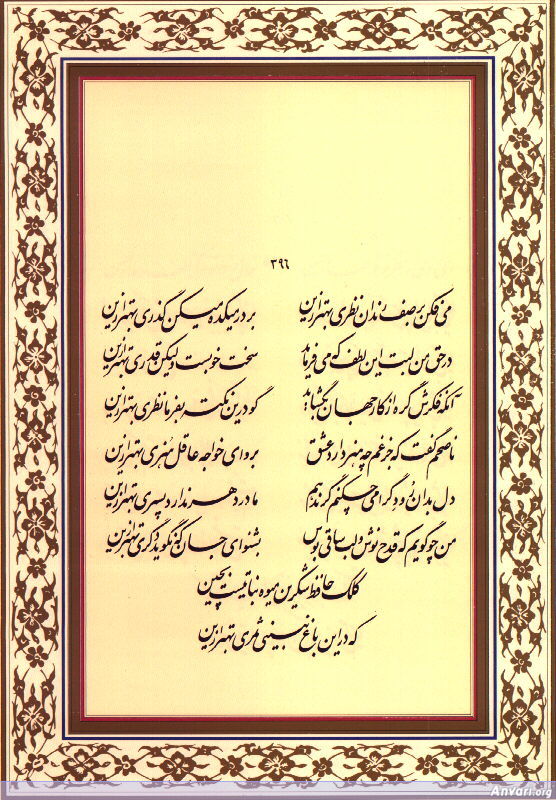 ۳۹۶
می فکن بر صف رندان نظری بهتر ازین بر در میکده می‌کن گذری بهتر ازین
در حق من لبت این لطف که می فرماید سخت خوبست ولیکن قدری بهتر ازین
آنکه فکرش گره از کار جهان بگشاید گو درین نکته بفرما نظری بهتر ازین
ناصحم گفت که جز غم چه هنر دارد عشق برو ای خواجه عاقل هنری بهتر ازین
دل بدان رود گرامی چکنم گر ندهم مادر دهر ندارد پسری بهتر ازین
من چو گویم که قدح نوش و لب ساقی بوس بشنو ای جان که نگوید دگری بهتر ازین
کلک حافظ شکرین میوه نباتیست بچین
که در این باغ نبینی ثمری بهتر ازین
Anvari.org